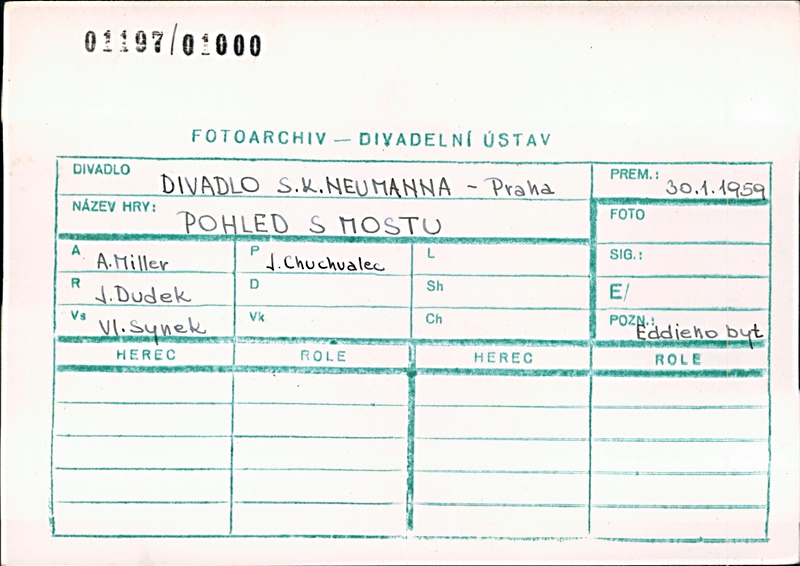 01197/01000
FOTOARCHIV — DIVADELNÍ ÚSTAV
DIVADLO DIVADLO S.K.NEUMANNA - Praha
PREM.: 30.1.1959
NÁZEV HRY: POHLED S MOSTU
FOTO
A A.Miller P J.Chuchvalec L
SIG.:
R J.Dudek D Sh
E/
Vs Vl.Synek Vk Ch
POZN.: Eddieho byt
HEREC ROLE HEREC ROLE